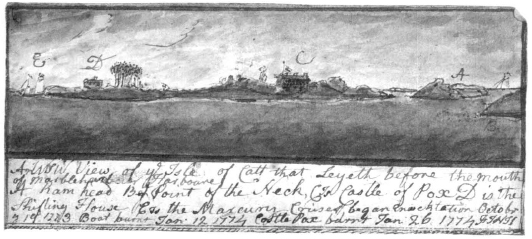 E D C A
A NW View of yᵉ Isle of Catt that Leyeth before the mouth
of Marblehead Harbour
A ham head B Point of the Neck, C Castle of Pox D is the
Shifting House E is the Mercury Cruiser began inoculation October
1773 Boat burnt Jan: 12 1774 Castle Pox burnt Jan 26 1774